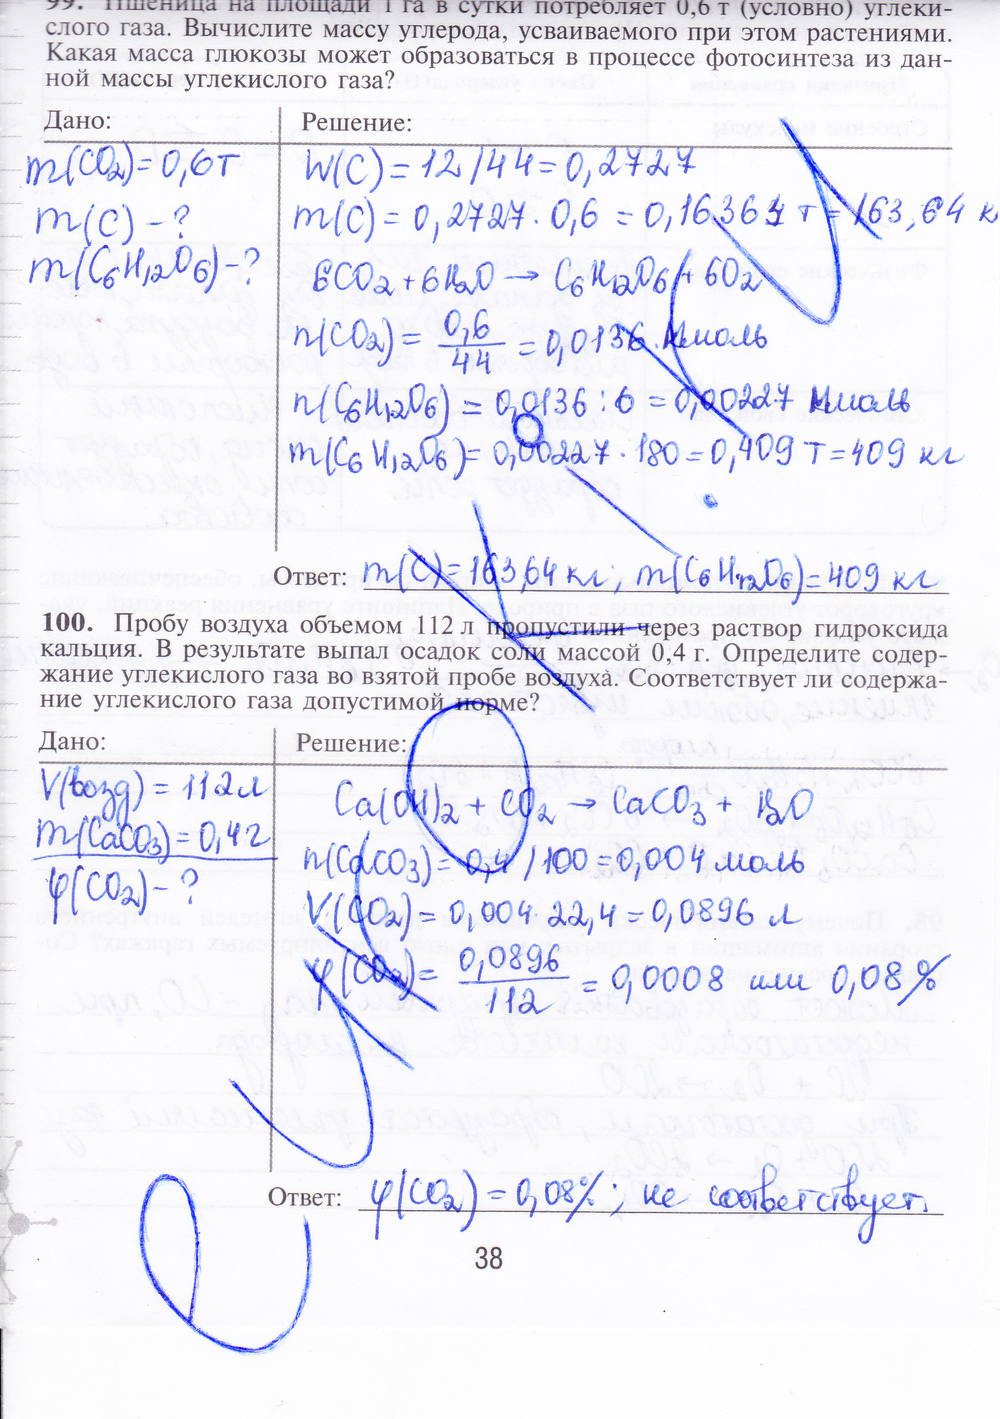 99. Пшеница на площади 1 га в сутки потребляет 0,6 т (условно) углеки-
слого газа. Вычислите массу углерода, усваиваемого при этом растениями.
Какая масса глюкозы может образоваться в процессе фотосинтеза из дан-
ной массы углекислого газа?
Дано:
Решение:
m(CO2)=0,6т
m(C)-?
m(C6H12O6)-?
W(C)=12/44=0,2727
m(C)=0,2727·0,6=0,16364 т=163,64 к
6CO2+6H2O→C6H12O6+6O2
n(CO2)=0,6/44=0,0136 Кмоль
n(C6H12O6)=0,0136:6=0,00227 Кмоль
m(C6H12O6)=0,00227·180=0,409 т=409 кг
Ответ: m(C)=163,64 кг; m(C6H12O6)=409 кг
100. Пробу воздуха объемом 112 л пропустили через раствор гидроксида
кальция. В результате выпал осадок соли массой 0,4 г. Определите содер-
жание углекислого газа во взятой пробе воздуха. Соответствует ли содержа-
ние углекислого газа допустимой норме?
Дано:
Решение:
V(возд)=112л
m(CaCO3)=0,4г
φ(CO2)-?
Ca(OH)2+CO2→CaCO3+H2O
n(CaCO3)=0,4/100=0,004моль
V(CO2)=0,004·22,4=0,0896 л
φ(CO2)=0,0896/112=0,0008 или 0,08%
Ответ: φ(CO2)=0,08%; не соответствует.
38